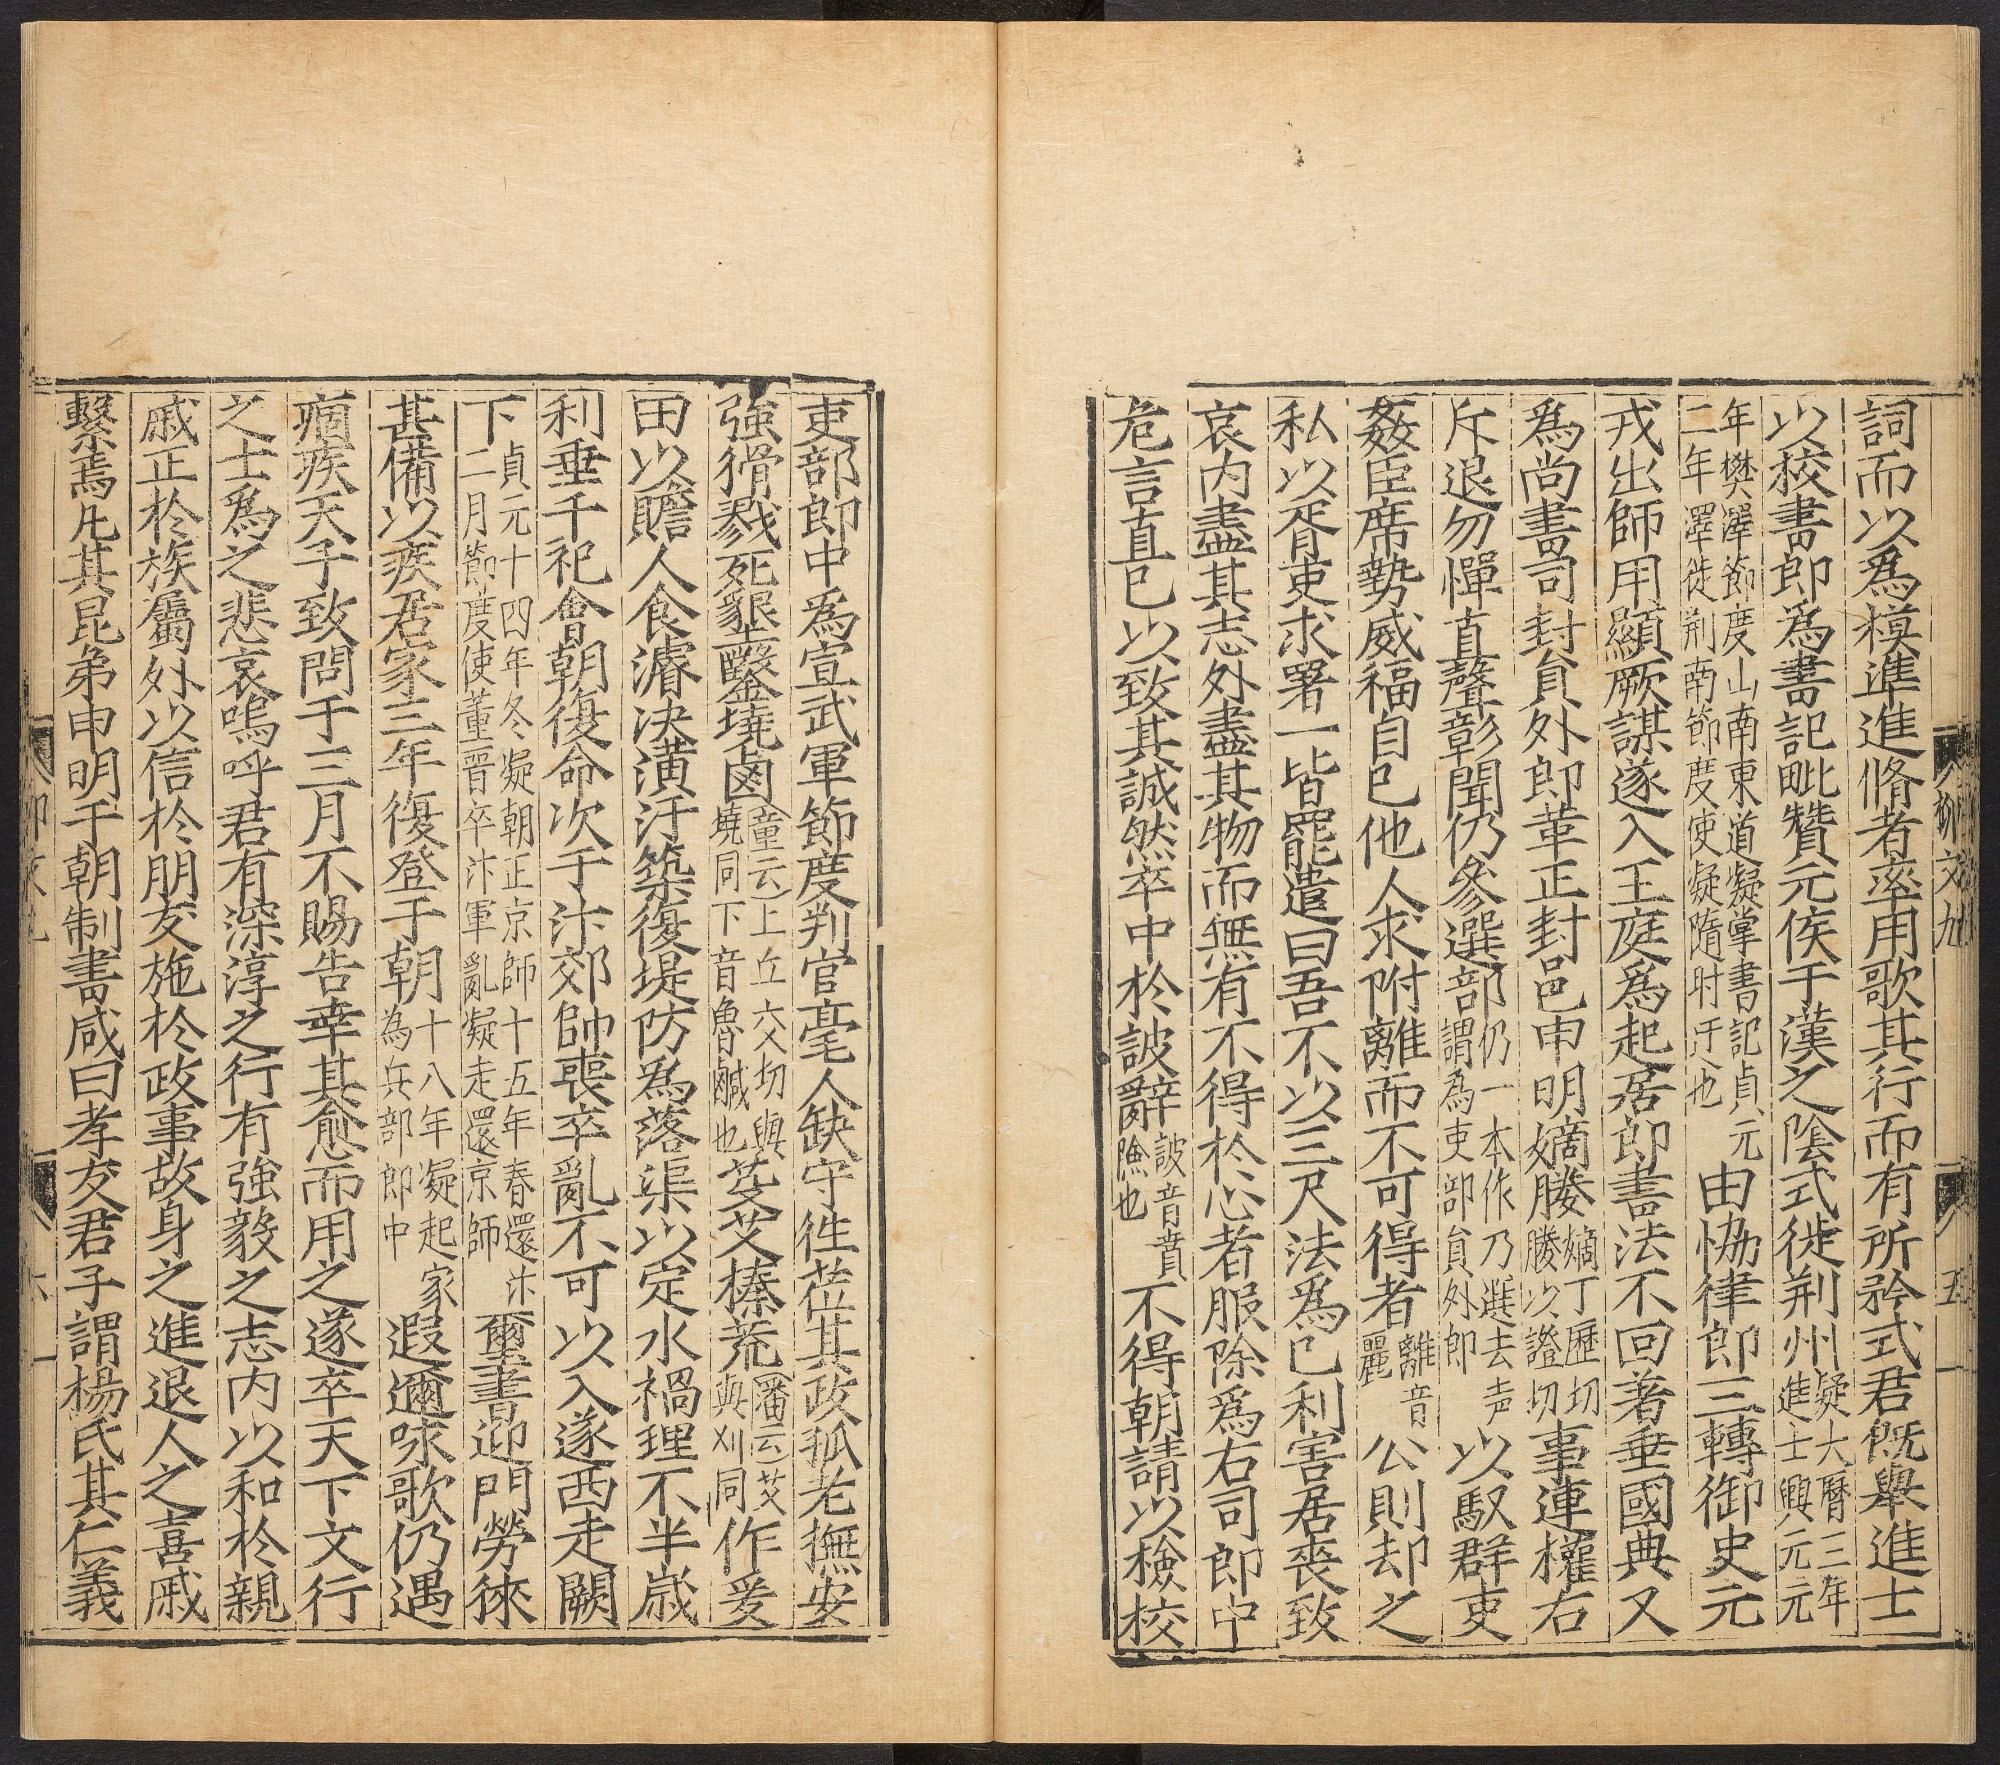 詞而以為模準進脩者率用歌其行而有所矜式君既舉進士
以校書郎為書記毗贊元侯于漢之陰式徙荊州凝大曆三年進士興元元
年樊澤節度山南東道凝掌書記貞元二年澤徙荊南節度使凝隨府迁也由恊律郎三轉御史元
戎出師用顯厥謀遂入王庭為起居郎書法不回著垂國典又
為尚書司封貟外郎革正封邑申明嫡媵嫡丁歷切媵以證切事連權右
斥退勿憚直聲彰聞仍參選部仍一本作乃選去声謂為吏部貟外郎以馭群吏
姦臣席勢威福自已他人求附離而不可得者離音麗公則却之
私以胥吏求署一皆罷遣曰吾不以三尺法為已利害居喪致
哀内盡其志外盡其物而無有不得於心者服除為右司郎中
危言直已以致其誠然卒中於詖辭詖音賁險也不得朝請以檢校
柳文九 五
吏部郎中為宣武軍節度判官亳人缺守徃莅其政孤老撫安
強猾戮死墾鑿墝鹵童云上丘交切與磽同下音魯鹹也芟艾榛荒潘云艾與刈同作爰
田以贍人食濬決潢汙築復堤防為落渠以定水禍理不半歲
利垂千祀會朝復命次于汴郊帥喪卒亂不可以入遂西走闕
下貞元十四年冬凝朝正京師十五年春還汴二月節度使董晉卒汴軍亂凝走還京師璽書迎門勞徠
甚備以疾居家三年復登于朝十八年凝起家為兵部郎中遐邇咏歌仍遇
痼疾天子致問于三月不賜告幸其愈而用之遂卒天下文行
之士為之悲哀嗚呼君有深淳之行有強毅之志内以和於親
戚正於族屬外以信於朋友施於政事故身之進退人之喜戚
繫焉凡其昆弟申明于朝制書咸曰孝友君子謂楊氏其仁義